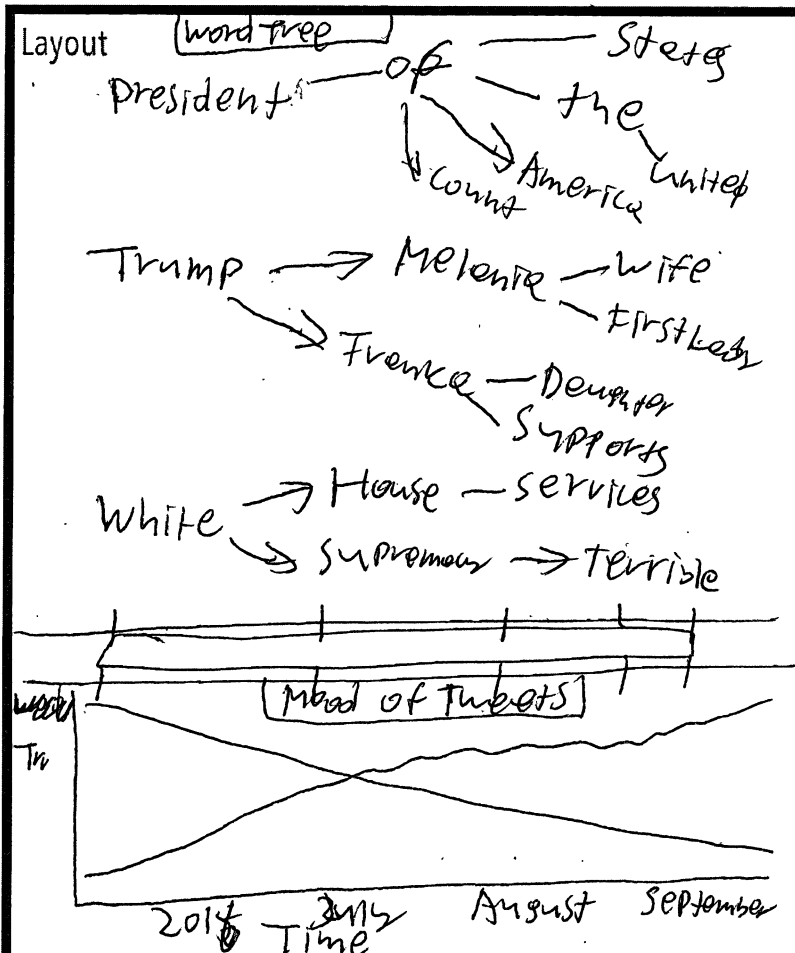 Layout
Word Tree
President of States
the
United
America
Count
Trump Melania wife
First Lady
Ivanka Daughter
Supports
White House services
Supremacy Terrible
Mood of Tweets
August September
Time